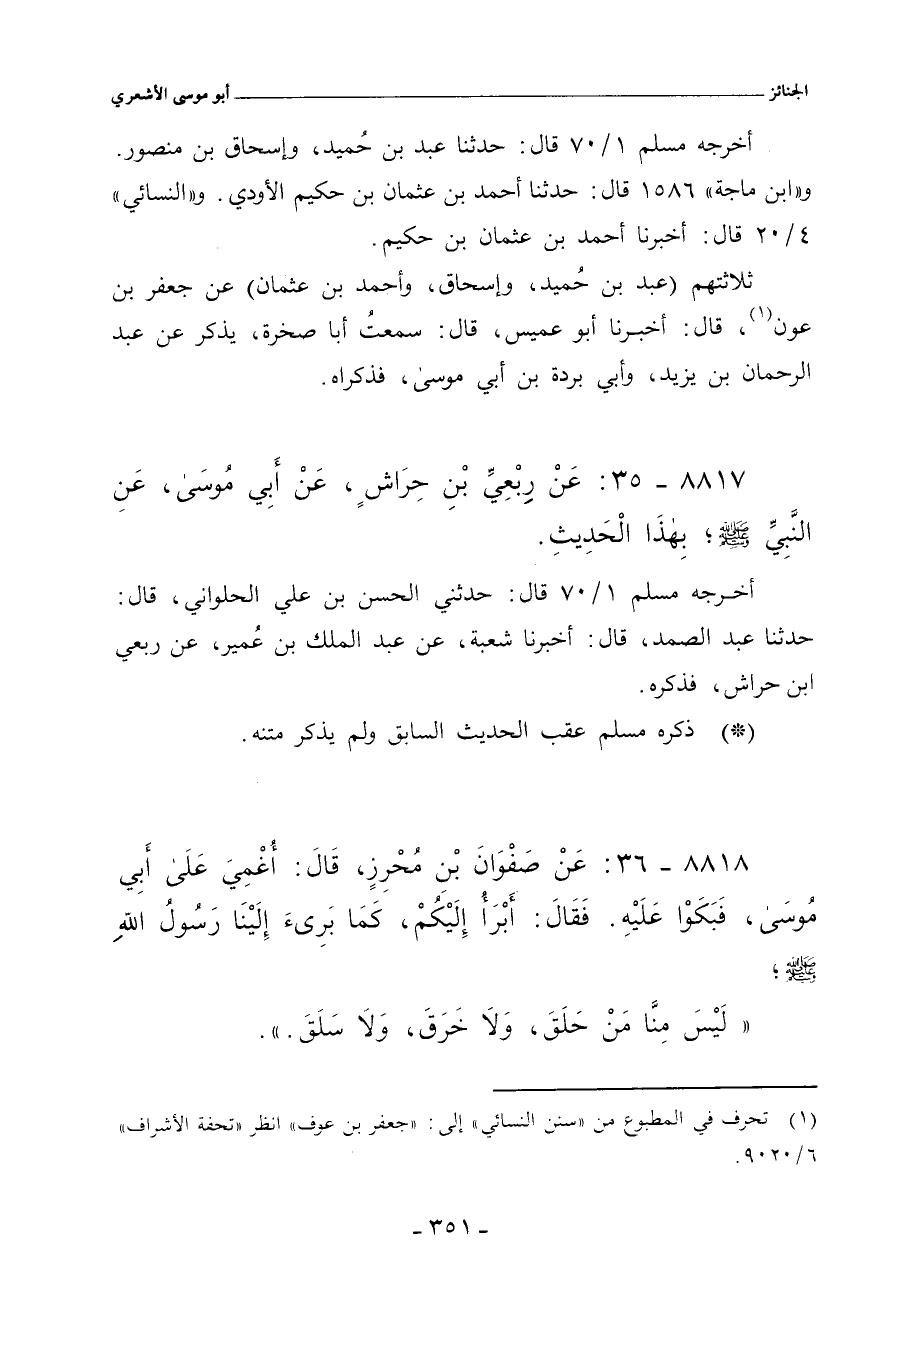 الجنائز ـــــ أبو موسى الأشعري
أخرجه مسلم ٧٠/١ قال: حدثنا عبد بن حُميد، وإسحاق بن منصور.
و«ابن ماجة» ١٥٨٦ قال: حدثنا أحمد بن عثمان بن حكيم الأودي. و«النسائي»
٢٠/٤ قال: أخبرنا أحمد بن عثمان بن حكيم.
ثلاثتهم (عبد بن حُميد، وإسحاق، وأحمد بن عثمان) عن جعفر بن
عون(١)، قال: أخبرنا أبو عميس، قال: سمعتُ أبا صخرة، يذكر عن عبد
الرحمان بن يزيد، وأبي بردة بن أبي موسىٰ، فذكراه.
٨٨١٧ ـ ٣٥: عَنْ رِبْعِيِّ بْنِ حِرَاشٍ، عَنْ أَبِي مُوسَىٰ، عَنِ
النَّبِيِّ ﷺ؛ بِهٰذَا الْحَدِيثِ.
أخرجه مسلم ٧٠/١ قال: حدثني الحسن بن علي الحلواني، قال:
حدثنا عبد الصمد، قال: أخبرنا شعبة، عن عبد الملك بن عُمير، عن ربعي
ابن حراش، فذكره.
(*) ذكره مسلم عقب الحديث السابق ولم يذكر متنه.
٨٨١٨ ـ ٣٦: عَنْ صَفْوَانَ بْنِ مُحْرِزٍ، قَالَ: أُغْمِيَ عَلَىٰ أَبِي
مُوسَىٰ، فَبَكَوْا عَلَيْهِ. فَقَالَ: أَبْرَأُ إِلَيْكُمْ، كَمَا بَرِىءَ إِلَيْنَا رَسُولُ اللهِ
ﷺ؛
« لَيْسَ مِنَّا مَنْ حَلَقَ، وَلَا خَرَقَ، وَلَا سَلَقَ.».
(١) تحرف في المطبوع من «سنن النسائي» إلى: «جعفر بن عوف» انظر «تحفة الأشراف»
٩٠٢٠/٦.
ـ ٣٥١ ـ